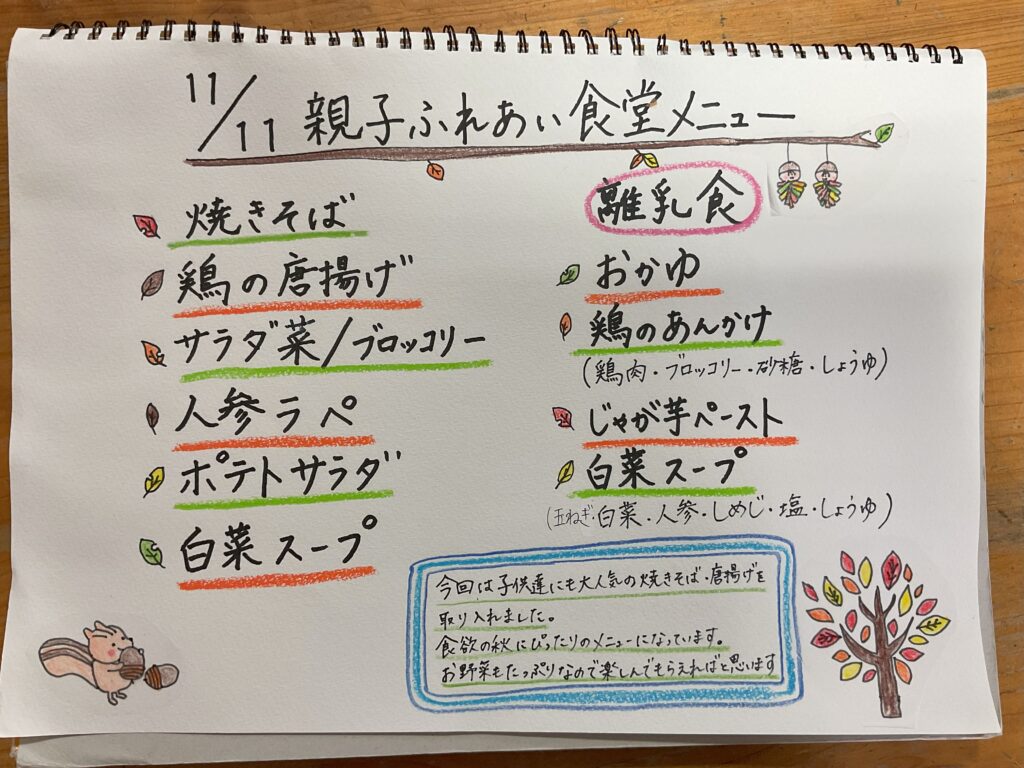 11/11 親子ふれあい食堂メニュー
焼きそば
鶏の唐揚げ
サラダ菜/ブロッコリー
人参ラペ
ポテトサラダ
白菜スープ
離乳食
おかゆ
鶏のあんかけ
(鶏肉・ブロッコリー・砂糖・しょうゆ)
じゃが芋ペースト
白菜スープ
(玉ねぎ・白菜・人参・しめじ・塩・しょうゆ)
今回は子供達にも大人気の焼きそば・唐揚げを
取り入れました。
食欲の秋にぴったりのメニューになっています。
お野菜もたっぷりなので楽しんでもらえればと思います